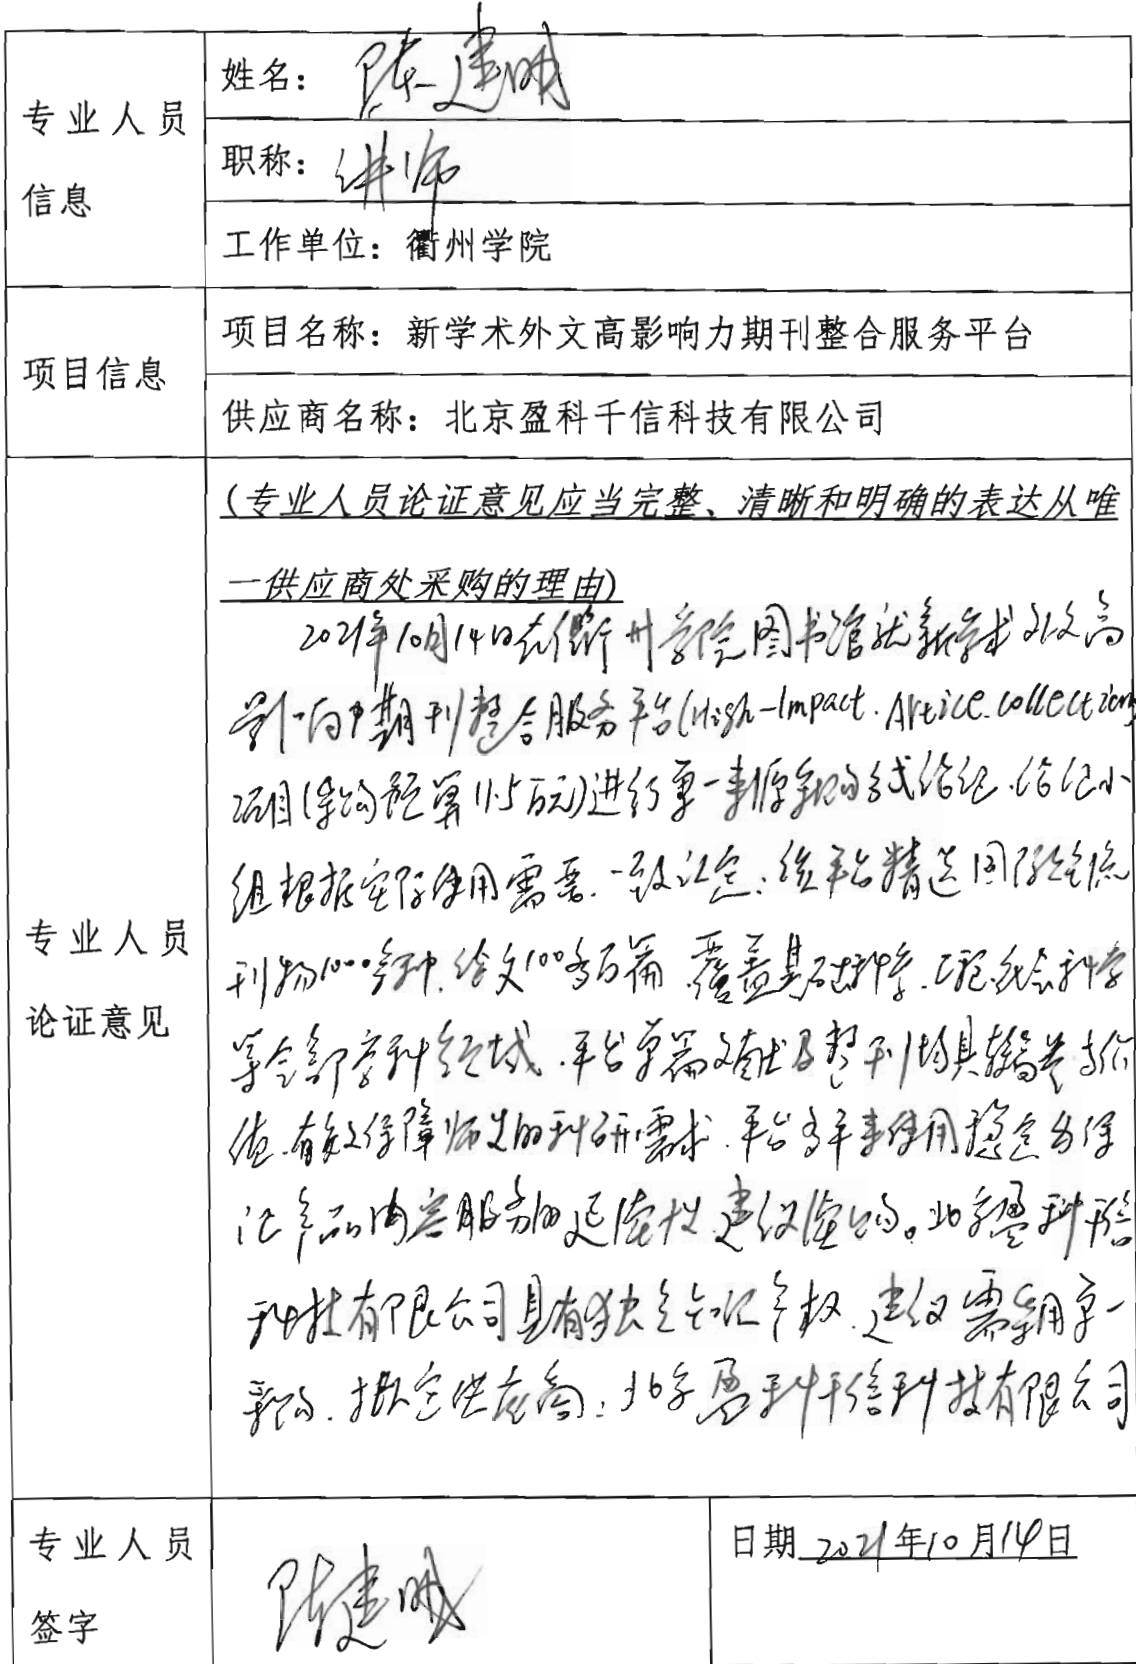 专业人员
信息
姓名：陈建明
职称：讲师
工作单位：衢州学院
项目信息
项目名称：新学术外文高影响力期刊整合服务平台
供应商名称：北京盈科千信科技有限公司
专业人员
论证意见
（专业人员论证意见应当完整、清晰和明确的表达从唯
一供应商处采购的理由）
2021年10月14日在衢州学院图书馆就新学术外文高
影响力期刊整合服务平台(High-Impact. Artice. collection)
项目(采购预算11.5万元)进行单一来源采购方式论证.论证小
组根据实际使用需要.一致认定:该平台精选国际
刊物1000余种.论文100多万篇.覆盖基础科学.工程.社会科学
等全部学科领域.平台单篇文献及整刊均具较高参考价
值.有效保障师生的科研需求.平台多年来使用稳定为保
证产品内容服务的延续性.建议续购。北京盈科千信
科技有限公司具有独立知识产权.建议需采用单一
采购.拟定供应商:北京盈科千信科技有限公司
专业人员
签字
陈建明
日期 2021年10月14日